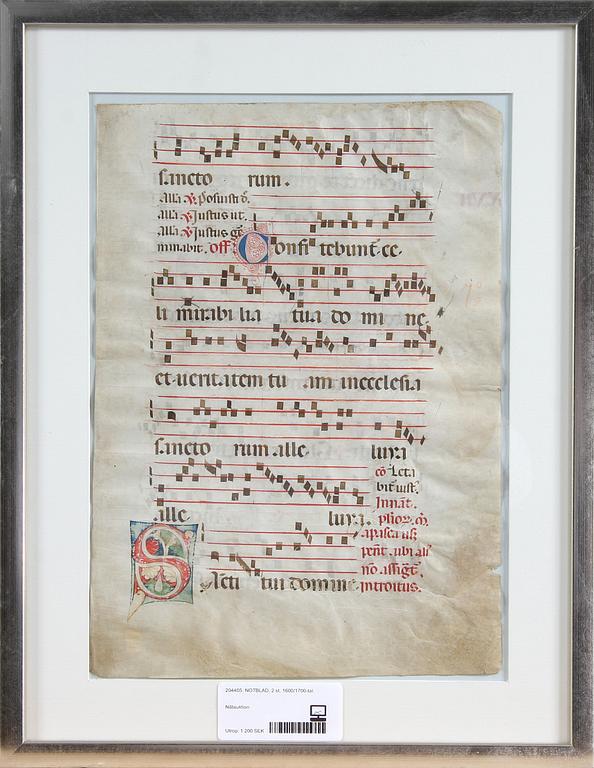 sancto rum.
alla ℣. Posuisti d.
alla ℣. Justus ut.
alla ℣. Justus ge
minabit. off. Confitebunt ce
li mirabi lia tua do mi ne.
et ueritatem tu am in ecclesia
sancto rum alle luya
cō Leta
bit iust.
alle luya.
In nat.
plior. m̄.
a pasca usq
pent. ubi ali
no assigt
introitus.
Sancti tui domine
204405. NOTBLAD, 2 st, 1600/1700-tal.
Nätauktion
Utrop: 1 200 SEK